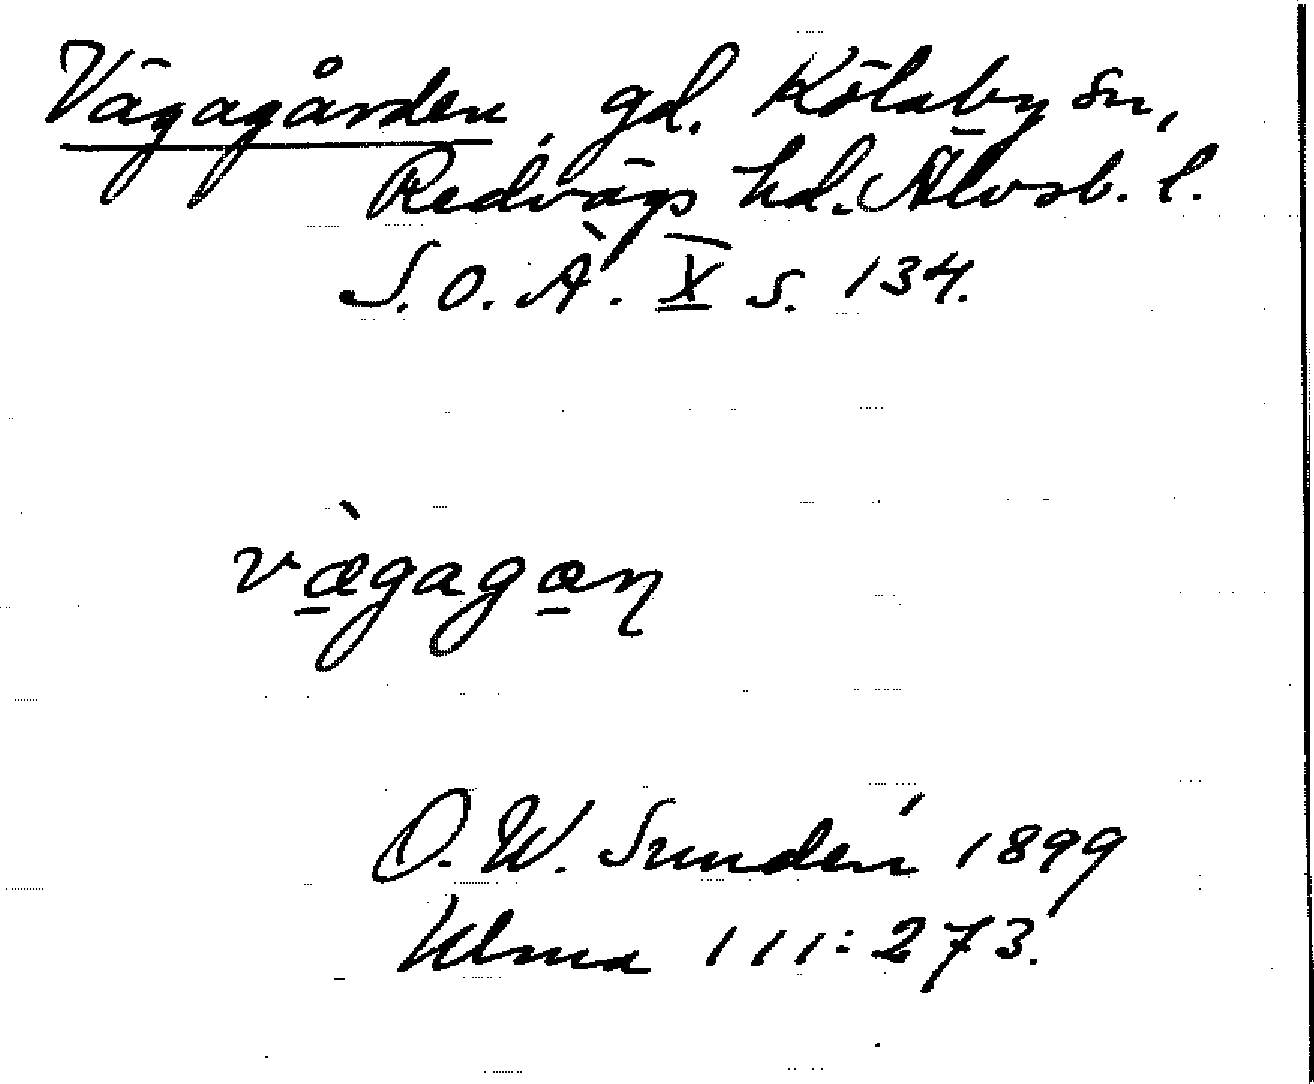 Vägagården, gd. Kölaby sn,
Redvägs hd. Älvsb. l.
S. O. Ä. X s. 134.
væ̀gagæn
O. W. Sundén 1899
Ulma 111:273.